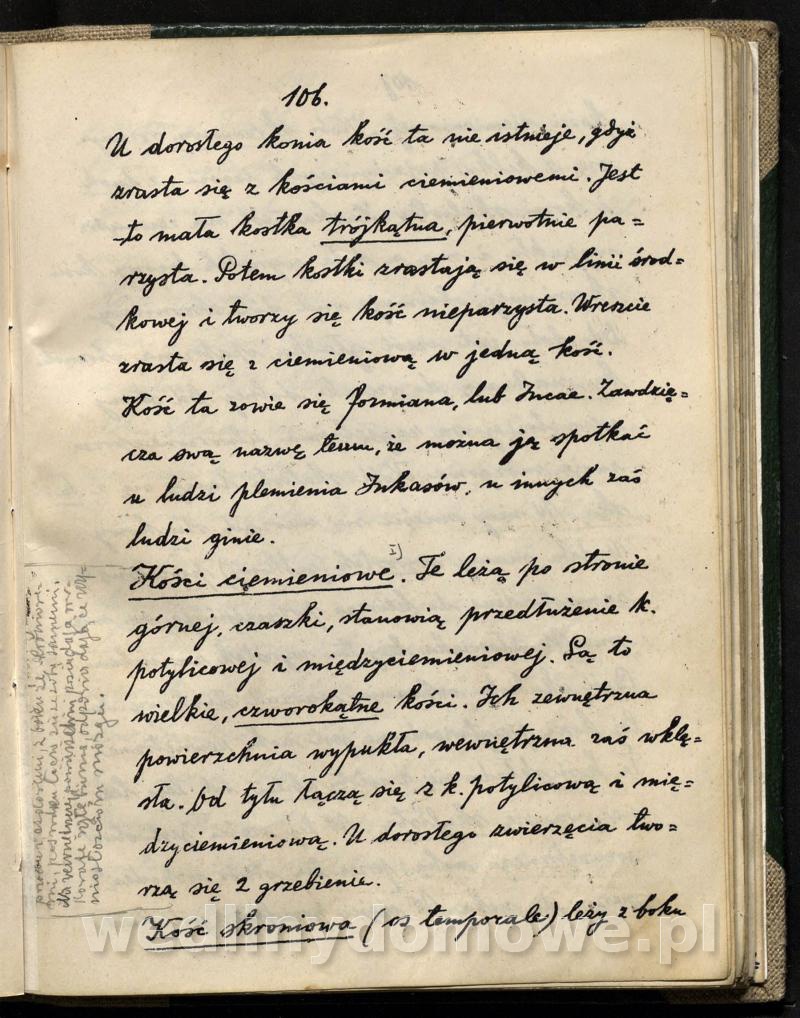 106.
U dorosłego konia kość ta nie istnieje, gdyż
zrasta się z kościami ciemieniowemi. Jest
to mała kostka trójkątna, pierwotnie pa=
rzysta. Potem kostki zrastają się w linii środ=
kowej i tworzy się kość nieparzysta. Wreszcie
zrasta się z ciemieniową w jedną kość.
Kość ta zowie się formiana, lub Incae. Zawdzię=
cza swą nazwę temu, że można ją spotkać
u ludzi plemienia Inkasów, u innych zaś
ludzi ginie.
Kości ciemieniowe I). Te leżą po stronie
górnej, czaszki, stanowią przedłużenie k.
potylicowej i międzyciemieniowej. Są to
wielkie, czworokątne kości. Ich zewnętrzna
powierzchnia wypukła, wewnętrzna zaś wklę=
sła. Od tyłu łączą się z k. potylicową i mię=
dzyciemieniową. U dorosłego zwierzęcia two=
rzą się 2 grzebienie.
Kość skroniowa (os temporale) leży z boku
z boku ze skroniowe=
mi, pośrodku
Na wewnętrznej powierzchni posiadają
mózgu.
wedlinydomowe.pl